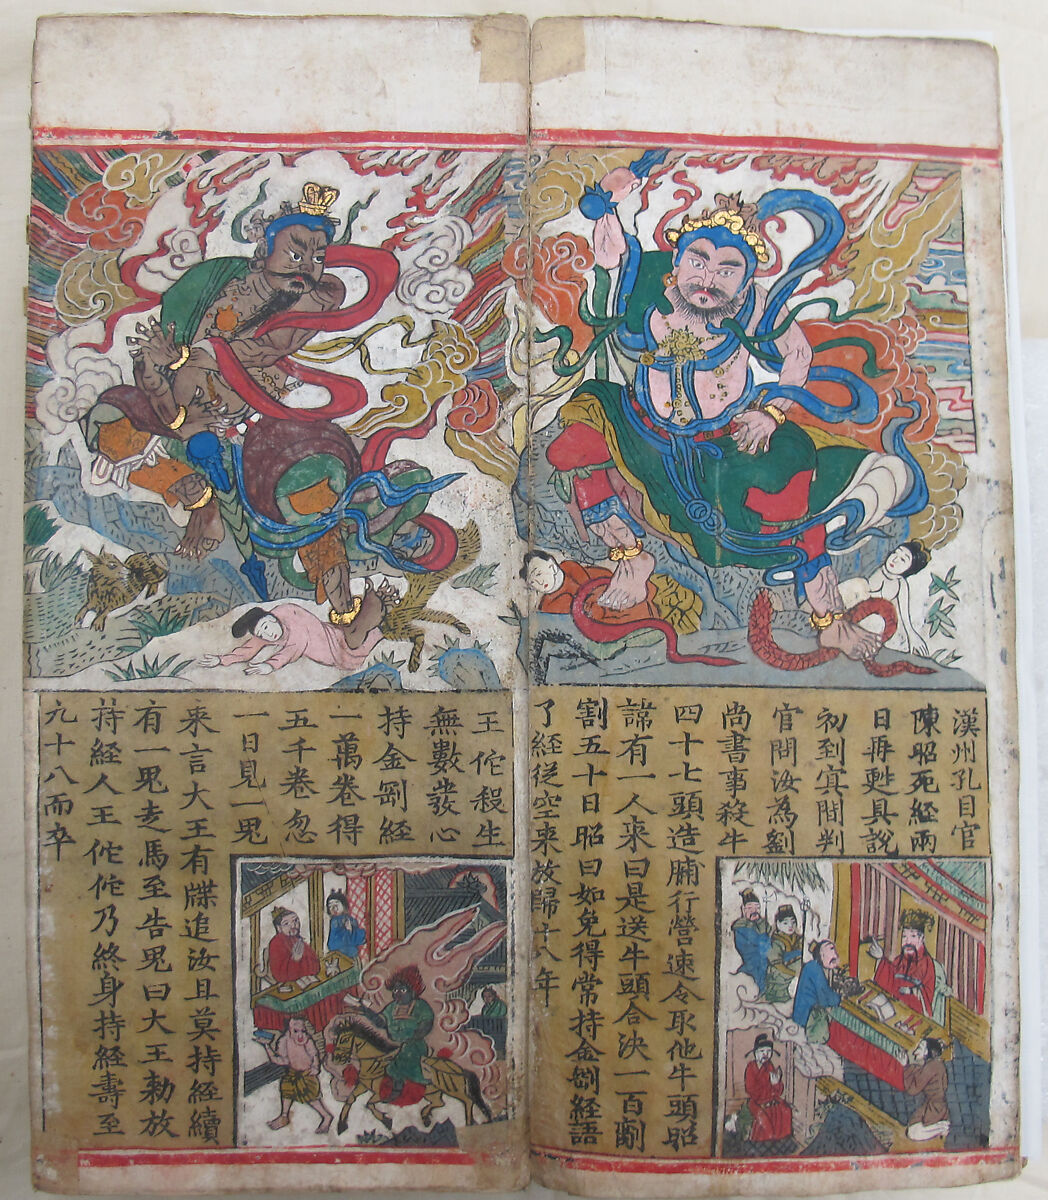 漢州孔目官
陳昭死經兩
日再甦具說
初到冥間判
官問汝為劉
尚書事殺牛
四十七頭造脯行營速令取他牛頭昭
諱有一人来曰是送牛頭合決一百剮
割五十日昭曰如免得常持金剛經語
了經従空来放歸十八年
王佗殺生
無數發心
持金剛經
一萬卷得
五千卷忽
一日見一鬼
来言大王有牒追汝且莫持經續
有一鬼走馬至告鬼曰大王勅放
持經人王佗佗乃終身持經壽至
九十八而卒